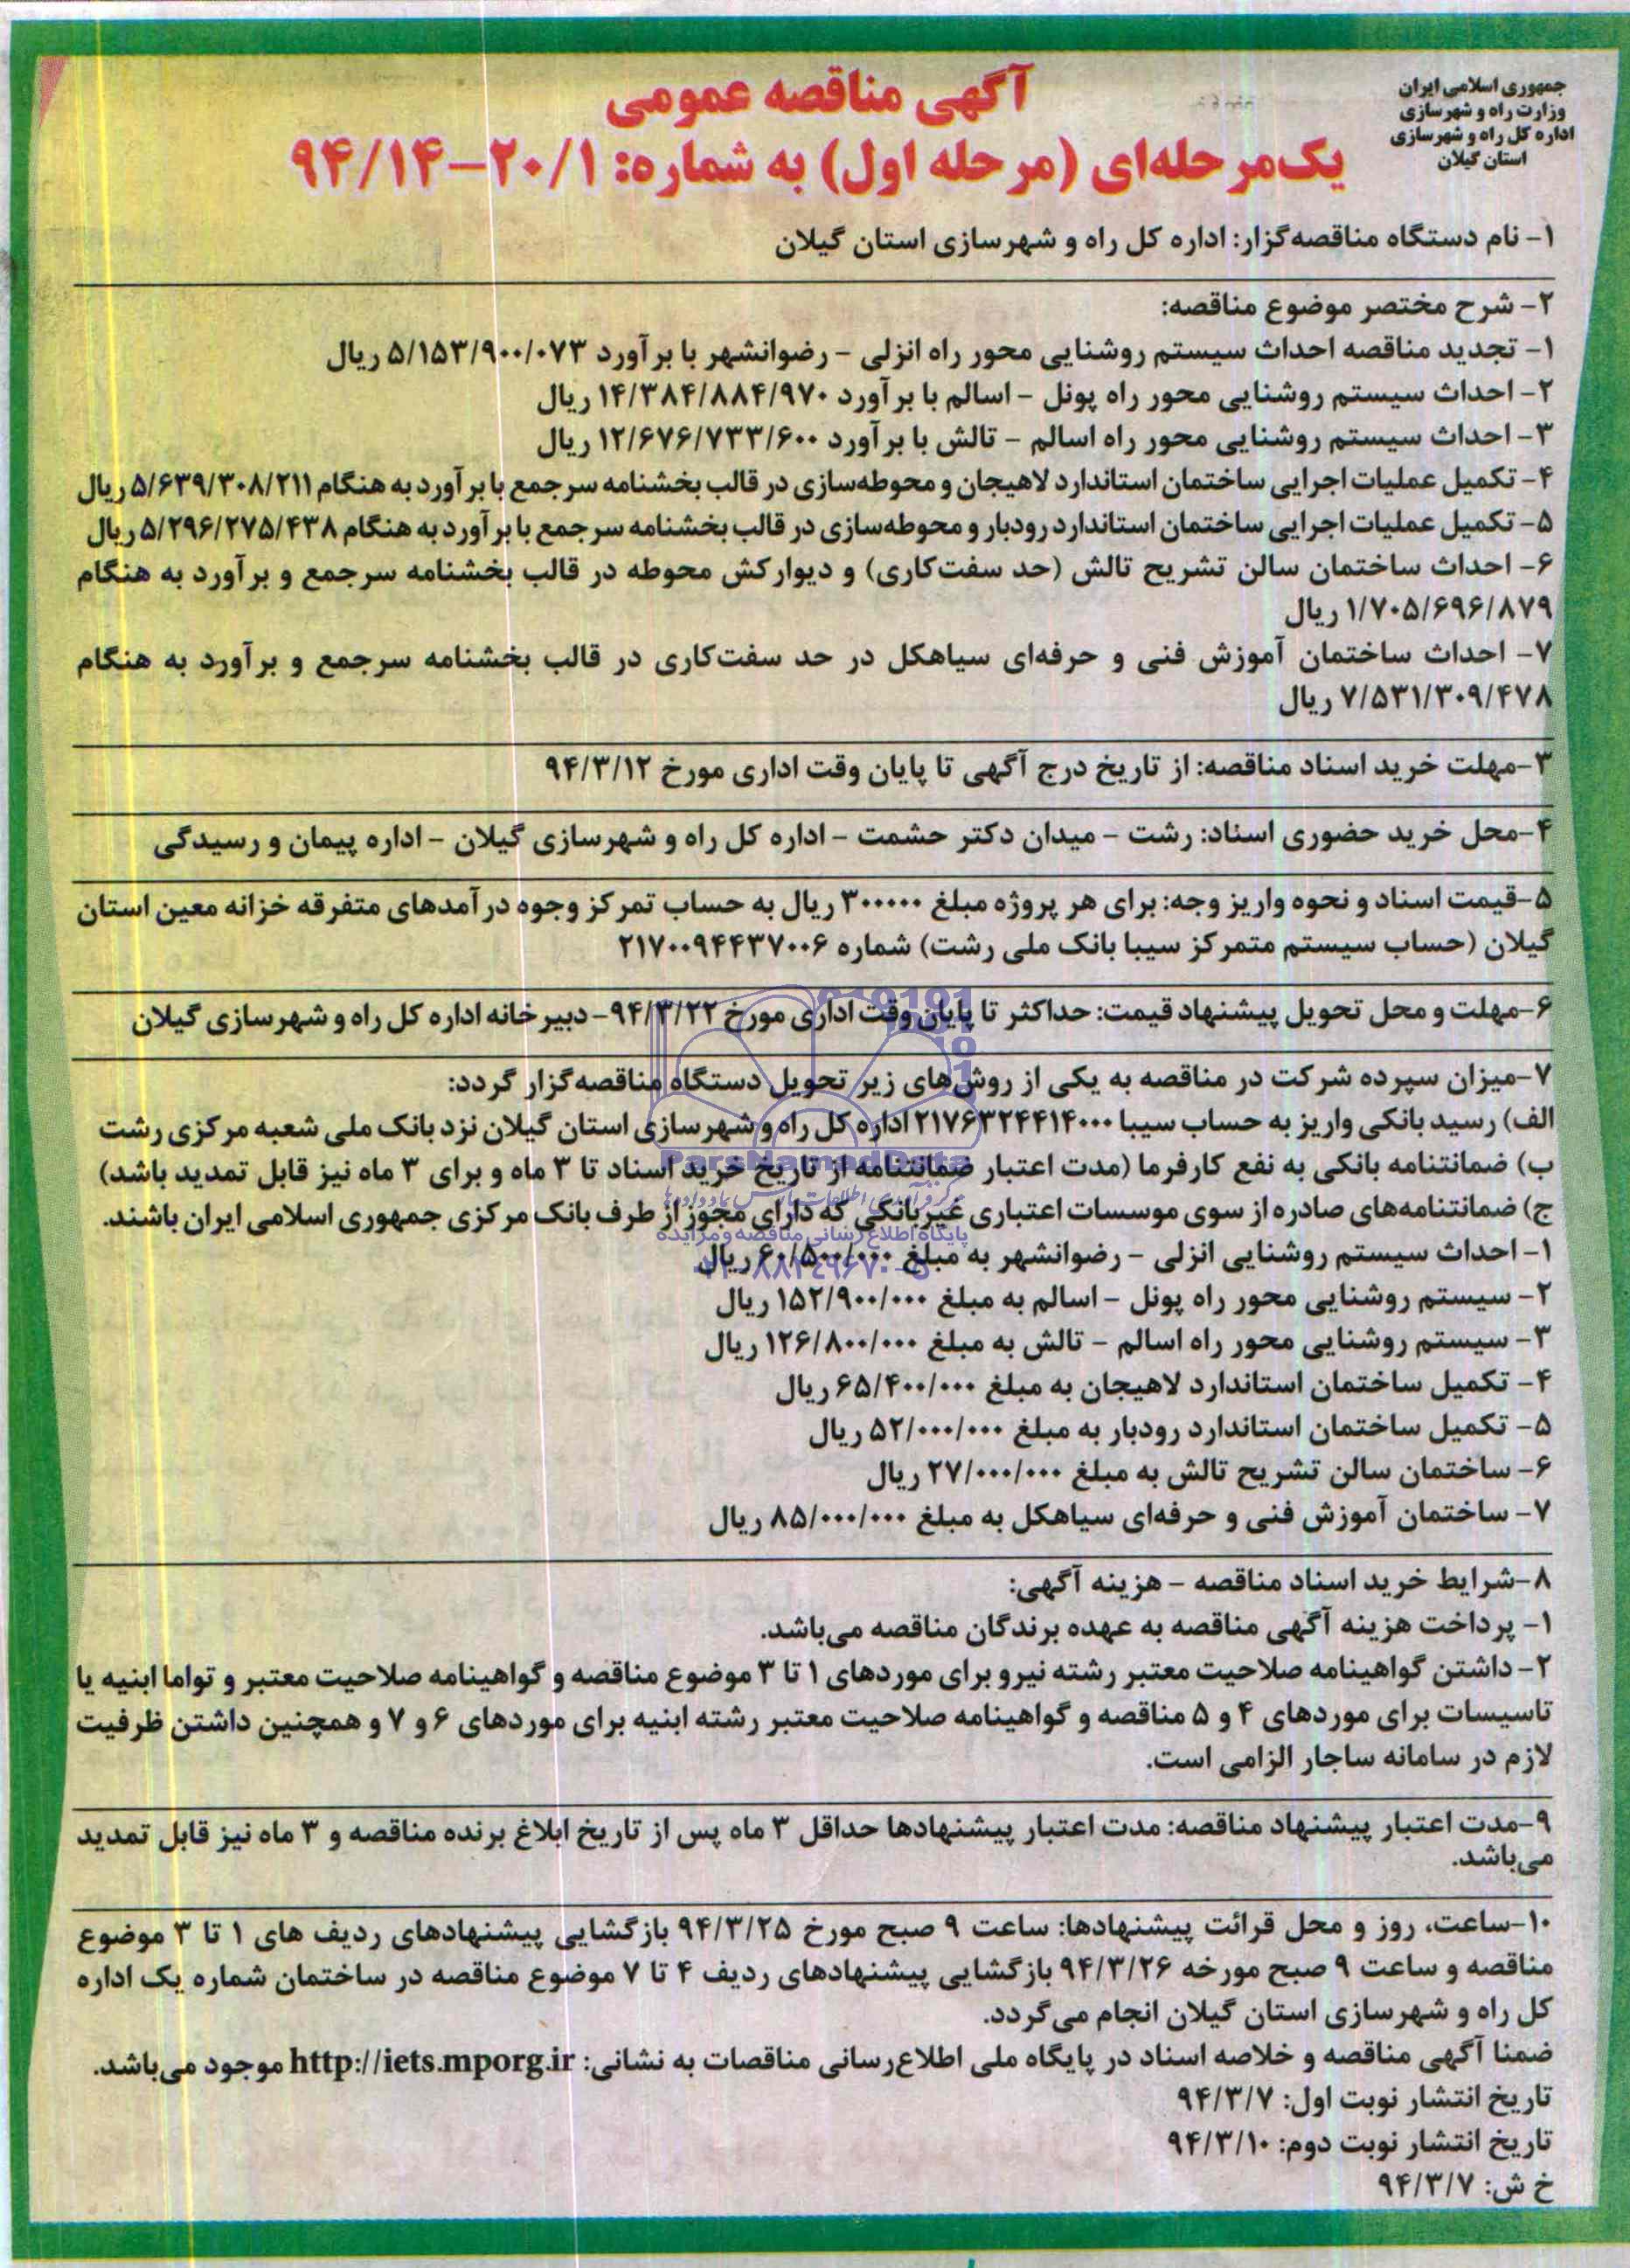 جمهوری اسلامی ایران
وزارت راه و شهرسازی
اداره کل راه و شهرسازی
استان گیلان
آگهی مناقصه عمومی
یک‌مرحله‌ای (مرحله اول) به شماره: ۲۰/۱-۹۴/۱۴
۱- نام دستگاه مناقصه‌گزار: اداره کل راه و شهرسازی استان گیلان
۲- شرح مختصر موضوع مناقصه:
۱- تجدید مناقصه احداث سیستم روشنایی محور راه انزلی - رضوانشهر با برآورد ۵/۱۵۳/۹۰۰/۰۷۳ ریال
۲- احداث سیستم روشنایی محور راه پونل - اسالم با برآورد ۱۴/۳۸۴/۸۸۴/۹۷۰ ریال
۳- احداث سیستم روشنایی محور راه اسالم - تالش با برآورد ۱۲/۶۷۶/۷۳۳/۶۰۰ ریال
۴- تکمیل عملیات اجرایی ساختمان استاندارد لاهیجان و محوطه‌سازی در قالب بخشنامه سرجمع با برآورد به هنگام ۵/۶۳۹/۳۰۸/۲۱۱ ریال
۵- تکمیل عملیات اجرایی ساختمان استاندارد رودبار و محوطه‌سازی در قالب بخشنامه سرجمع با برآورد به هنگام ۵/۲۹۶/۲۷۵/۴۳۸ ریال
۶- احداث ساختمان سالن تشریح تالش (حد سفت‌کاری) و دیوارکش محوطه در قالب بخشنامه سرجمع و برآورد به هنگام
۱/۷۰۵/۶۹۶/۸۷۹ ریال
۷- احداث ساختمان آموزش فنی و حرفه‌ای سیاهکل در حد سفت‌کاری در قالب بخشنامه سرجمع و برآورد به هنگام
۷/۵۳۱/۳۰۹/۴۷۸ ریال
۳-مهلت خرید اسناد مناقصه: از تاریخ درج آگهی تا پایان وقت اداری مورخ ۹۴/۳/۱۲
۴-محل خرید حضوری اسناد: رشت - میدان دکتر حشمت - اداره کل راه و شهرسازی گیلان - اداره پیمان و رسیدگی
۵-قیمت اسناد و نحوه واریز وجه: برای هر پروژه مبلغ ۳۰۰۰۰۰ ریال به حساب تمرکز وجوه درآمدهای متفرقه خزانه معین استان
گیلان (حساب سیستم متمرکز سیبا بانک ملی رشت) شماره ۲۱۷۰۰۹۴۴۳۷۰۰۶
۶-مهلت و محل تحویل پیشنهاد قیمت: حداکثر تا پایان وقت اداری مورخ ۹۴/۳/۲۲- دبیرخانه اداره کل راه و شهرسازی گیلان
۷-میزان سپرده شرکت در مناقصه به یکی از روش‌های زیر تحویل دستگاه مناقصه‌گزار گردد:
الف) رسید بانکی واریز به حساب سیبا ۲۱۷۶۳۲۴۴۱۴۰۰۰ اداره کل راه و شهرسازی استان گیلان نزد بانک ملی شعبه مرکزی رشت
ب) ضمانتنامه بانکی به نفع کارفرما (مدت اعتبار ضمانتنامه از تاریخ خرید اسناد تا ۳ ماه و برای ۳ ماه نیز قابل تمدید باشد)
ParsNamadData
ج) ضمانتنامه‌های صادره از سوی موسسات اعتباری غیربانکی که دارای مجوز از طرف بانک مرکزی جمهوری اسلامی ایران باشند.
پایگاه اطلاع رسانی مناقصه و مزایده
۱- احداث سیستم روشنایی انزلی - رضوانشهر به مبلغ ۶۰/۵۰۰/۰۰۰ ریال
۲- سیستم روشنایی محور راه پونل - اسالم به مبلغ ۱۵۲/۹۰۰/۰۰۰ ریال
۳- سیستم روشنایی محور راه اسالم - تالش به مبلغ ۱۲۶/۸۰۰/۰۰۰ ریال
۴- تکمیل ساختمان استاندارد لاهیجان به مبلغ ۶۵/۴۰۰/۰۰۰ ریال
۵- تکمیل ساختمان استاندارد رودبار به مبلغ ۵۲/۰۰۰/۰۰۰ ریال
۶- ساختمان سالن تشریح تالش به مبلغ ۲۷/۰۰۰/۰۰۰ ریال
۷- ساختمان آموزش فنی و حرفه‌ای سیاهکل به مبلغ ۸۵/۰۰۰/۰۰۰ ریال
۸-شرایط خرید اسناد مناقصه - هزینه آگهی:
۱- پرداخت هزینه آگهی مناقصه به عهده برندگان مناقصه می‌باشد.
۲- داشتن گواهینامه صلاحیت معتبر رشته نیرو برای موردهای ۱ تا ۳ موضوع مناقصه و گواهینامه صلاحیت معتبر و تواما ابنیه یا
تاسیسات برای موردهای ۴ و ۵ مناقصه و گواهینامه صلاحیت معتبر رشته ابنیه برای موردهای ۶ و ۷ و همچنین داشتن ظرفیت
لازم در سامانه ساجار الزامی است.
۹-مدت اعتبار پیشنهاد مناقصه: مدت اعتبار پیشنهادها حداقل ۳ ماه پس از تاریخ ابلاغ برنده مناقصه و ۳ ماه نیز قابل تمدید
می‌باشد.
۱۰-ساعت، روز و محل قرائت پیشنهادها: ساعت ۹ صبح مورخ ۹۴/۳/۲۵ بازگشایی پیشنهادهای ردیف های ۱ تا ۳ موضوع
مناقصه و ساعت ۹ صبح مورخه ۹۴/۳/۲۶ بازگشایی پیشنهادهای ردیف ۴ تا ۷ موضوع مناقصه در ساختمان شماره یک اداره
کل راه و شهرسازی استان گیلان انجام می‌گردد.
ضمنا آگهی مناقصه و خلاصه اسناد در پایگاه ملی اطلاع‌رسانی مناقصات به نشانی: http://iets.mporg.ir موجود می‌باشد.
تاریخ انتشار نوبت اول: ۹۴/۳/۷
تاریخ انتشار نوبت دوم: ۹۴/۳/۱۰
خ ش: ۹۴/۳/۷